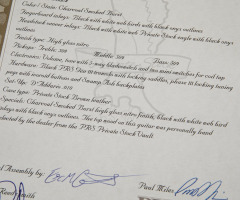 Color/Stain: Charcoal Smoked Burst
Fingerboard inlays: Black with white web birds with black eyes
outlines
Headstock veneer inlays: Black with white web Private Stock eagle with black eyes
outlines
Finish type: High gloss nitro
Pickups: Treble: 509 Middle: 509 Bass: 509
Electronics: Volume, tone with 5-way bladeswitch and two mini switches for coil tap
Hardware: Black PRS Gen III tremolo with locking saddles, phase III locking tuning
pegs with normal buttons and Swamp Ash backplates
Set-Up: D'Addario .010
Case type: Private Stock Brown leather
Specials: Charcoal Smoked Burst high gloss nitro finish; black with white web bird
inlays with black outlines. The top wood on this guitar was personally hand
selected by the dealer from the PRS Private Stock Vault
Assembly by:
Paul Miles
Smith